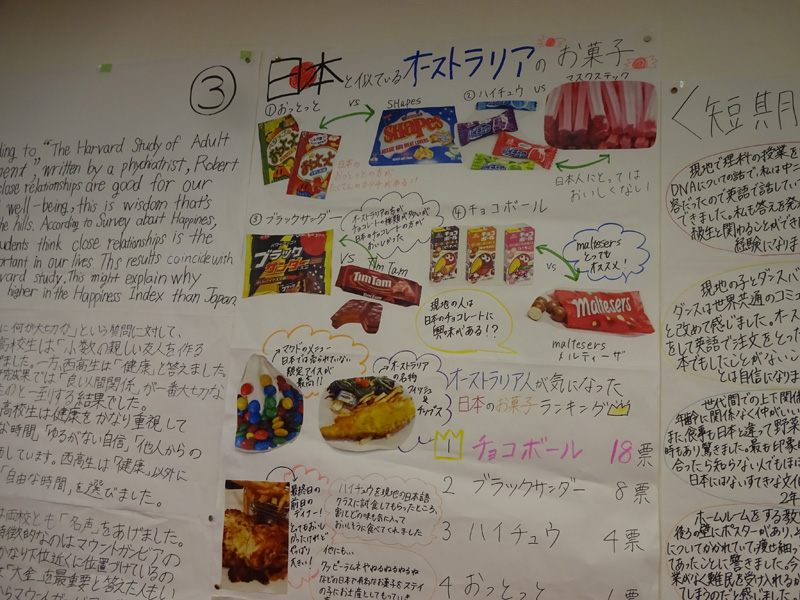 ③
"The Harvard Study of Adult
written by a phychiatrist, Robert
close relationships are good for our
well-being, this is wisdom that's
the hills. According to Survey about Happines,
students think close relationships is the
in our lives. This results coincide with
study. This might explain why
higher in the Happiness Index than Japan
という質問に対して、
高校生は「小数の親しい友人を作る
西高生は「健康」と答えました。
では「良い人間関係」が一番大切な
のと一致する結果でした。
高校生は健康をかなり重視して
時間」「ゆるがない自信」「他人からの
しています。西高生は「健康」以外に
「自由な時間」を選びました。
両校とも「名声」をあげました。
特徴的なのはマウントガンビアの
かなり下位近くに位置づけているの
「大金」を最重要と答えた人もい
日本と似ているオーストラリアのお菓子
①おっとっと
vs
SHapes
②ハイチュウ
vs
マスクステック
おっとっと
SHAPES
日本人にとっては
おいしくない!
③ブラックサンダー
vs
Tim Tam
ブラックサンダー
TimTam
オーストラリアの方が
チョコレートの種類が多いが
日本のチョコレートの方が
おいしかった
④チョコボール
vs
maltesers
とっても
オススメ!
Maltesers
maltesers
メルティーザ
現地の人は
日本のチョコレートに
興味がある!?
マクドのメニュー
日本では売られていない
限定アイスが
最高!!
オーストラリア
の名物
フィッシュ
&
チップス
オーストラリア人が気になった
日本のお菓子ランキング
1 チョコボール 18票
2 ブラックサンダー 8票
3 ハイチュウ 4票
4 おっとっと
最終日の
前日の
ディナー!
とってもおいし
かったけれど
やっぱり
大きい!
ハイチュウを現地の日本語
クラスに試食してもらったところ、
割とどの味も気に入って
おいしそうに食べてくれました
他にも...
ハッピーターンやねるねるねるね
などの日本で有名なお菓子をステイ
の子にお土産としてもっていき
<短期
現地で理科の授業を
DNAについての話で、私は中
英語で話してい
できました。私も答えを発
級生と関わることができ
経験になりま
現地の子とダンスバ
ダンスは世界共通のコミュ
と改めて感じました。オース
をして英語で注文をとった
本でもしたことがないこ
とは自信になりま
世代間での上下関係
年齢に関係なく仲がいい
また、食事も日本と違って野菜
時もあり驚きました。最も印象
合ったら知らない人でもほほ
日本にはないすてきな文化
2年
ホームルームをする教
後ろの壁にポスターがあり、
についてかかれていて痩せ細っ
てあったことに驚きました。今